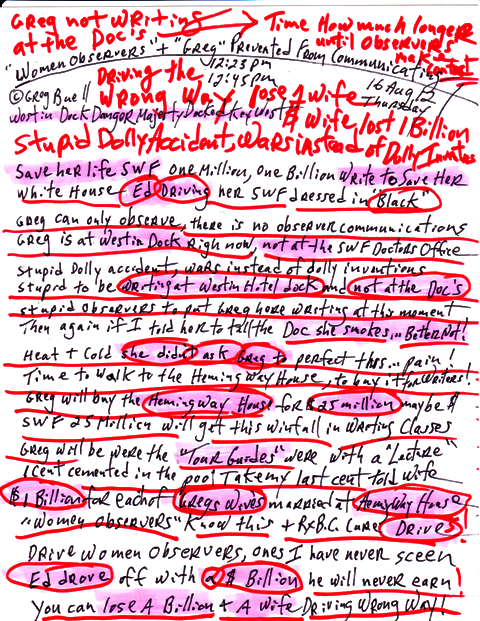 Greg not writing → Time How much longer
at the Doc's until observers
make contact
"Women Observers" + "Greg" Prevented From Communicating
12:23 pm
Driving the 12:45 pm 16 Aug 12
Wrong Way lose A Wife Thursday
© Greg Buell
Westin Dock Dangor Majesty Docked Key West
$ Wife lost 1 Billion
Stupid Dolly Accident, Wars instead of Dolly Inventions
Save her life SWF one Million, one Billion Write to Save Her
White House Ed Driving her SWF dressed in "Black"
Greg can only observe, there is no observer communications
Greg is at Westin Dock Right now, not at the SWF Doctors Office
Stupid Dolly accident, wars instead of dolly inventions
stupid to be writing at Westin Hotel dock and not at the Doc's
stupid observers to put Greg here writing at this moment
Then again if I told her to tell the Doc she smokes... Better Not!
Heat + Cold she didn't ask Greg to perfect this... pain!
Time to walk to the Hemingway House, to buy it for writers!
Greg will buy the Hemingway House for $25 million maybe $
SWF 25 Million will get this winfall in Writing Classes
Greg will be were the "Tour Guides" were with a "Lecture"
1 cent cemented in the pool Take my last cent told wife
$1 Billion for each of Gregs Wives married at Hemingway House
"Women Observers" Know this + RxB.C. Cure Drives!
Drive Women Observers, ones I have never sceen
Ed drove off with a $ Billion he will never earn!
You can lose A Billion + A wife Driving Wrong Way!